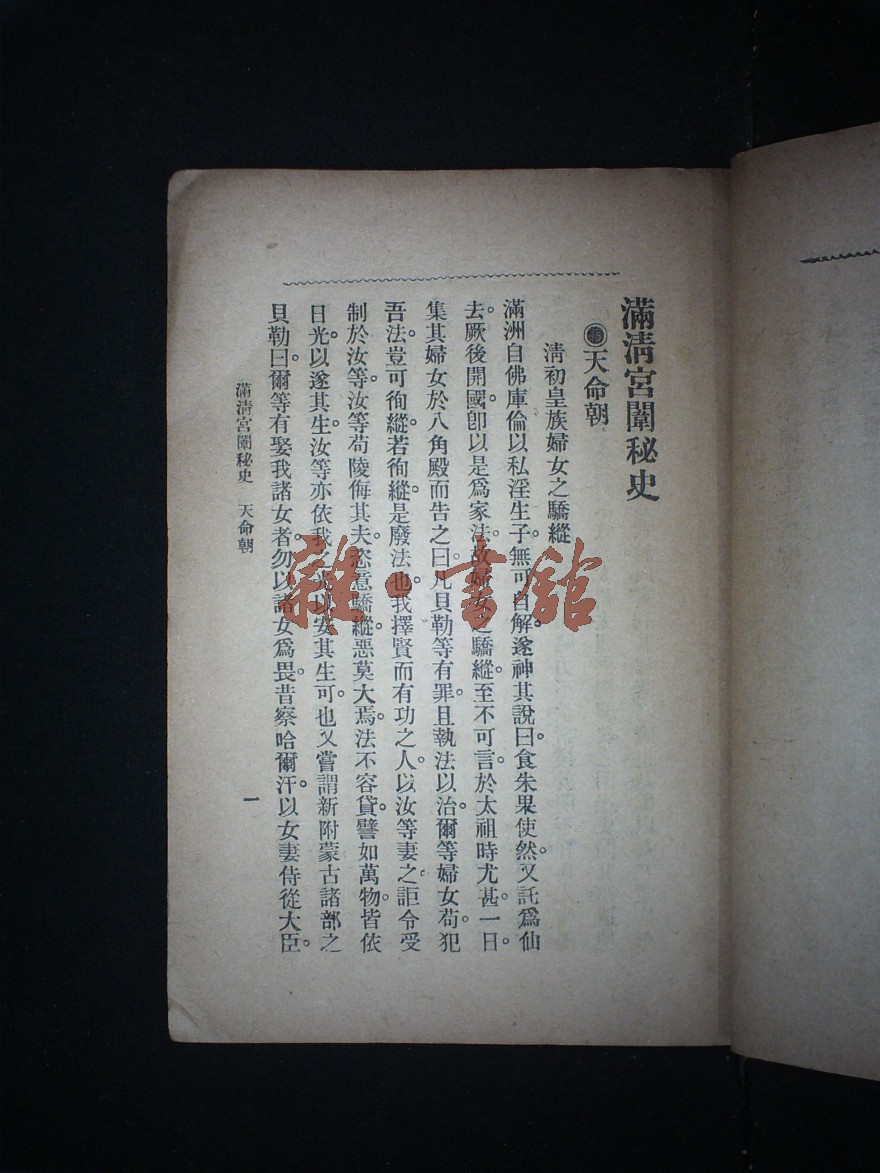 滿淸宮闈秘史
天命朝
淸初皇族婦女之驕縱
滿洲自佛庫倫以私淫生子。無可自解。遂神其說曰。食朱果使然。又託爲仙
去。厥後開國。卽以是爲家法。故婦女之驕縱。至不可言。於太祖時尤甚。一日。
集其婦女於八角殿而告之曰。凡貝勒等有罪。且執法以治。爾等婦女。苟犯
吾法。豈可徇縱。若徇縱。是廢法也。我擇賢而有功之人。以汝等妻之。詎令受
制於汝等。汝等苟陵侮其夫。恣意驕縱。惡莫大焉。法不容貸。譬如萬物。皆依
日光。以遂其生。汝等亦依我之光。以安其生可也。又嘗謂新附蒙古諸部之
貝勒曰。爾等有娶我諸女者。勿以諸女爲畏。昔察哈爾汗。以女妻侍從大臣。
滿淸宮闈秘史　天命朝
一
雜·書館